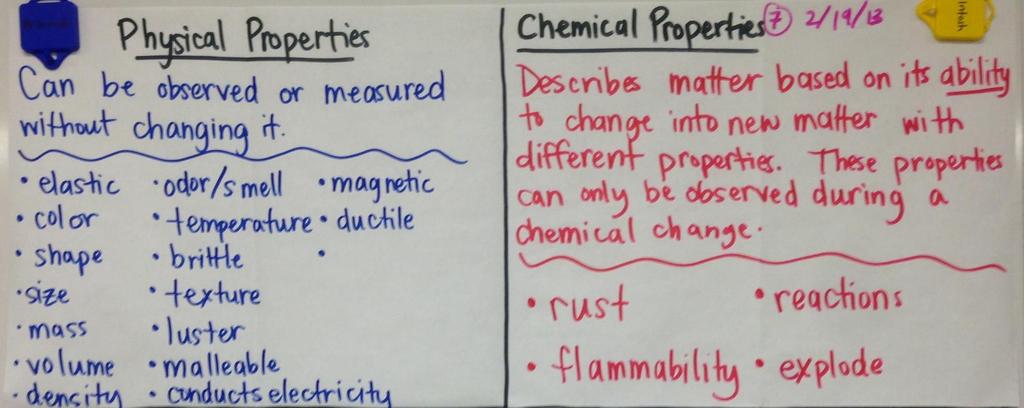 Physical Properties
Can be observed or measured
without changing it.
• elastic • odor/smell • magnetic
• color • temperature • ductile
• shape • brittle •
• size • texture
• mass • luster
• volume • malleable
• density • conducts electricity
Chemical Properties ⑦ 2/19/13
Describes matter based on its ability
to change into new matter with
different properties. These properties
can only be observed during a
chemical change.
• rust • reactions
• flammability • explode